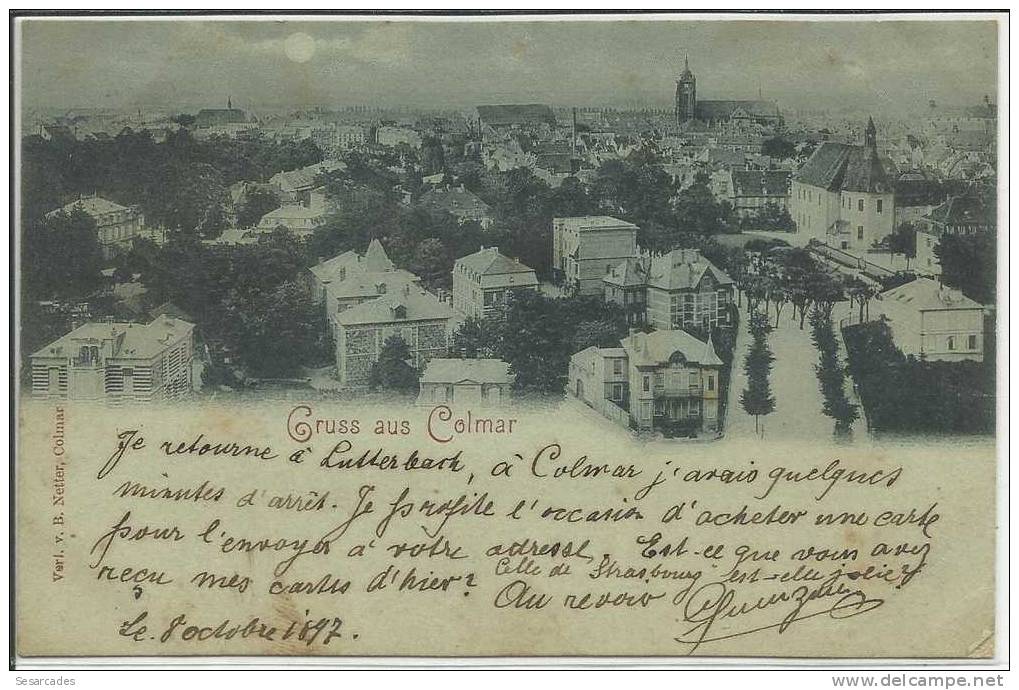 Gruss aus Colmar
Verl. v. B. Netter, Colmar
Je retourne à Lutterbach, à Colmar j'avais quelques
minutes d'arrêt. Je profite l'occasion d'acheter une carte
pour l'envoyer à vôtre adresse. Est-ce que vous avez
reçu mes cartes d'hier? Celle de Strasbourg est-elle jolie?
Au revoir
Le 8 octobre 1897.
Sesarcades
www.delcampe.net